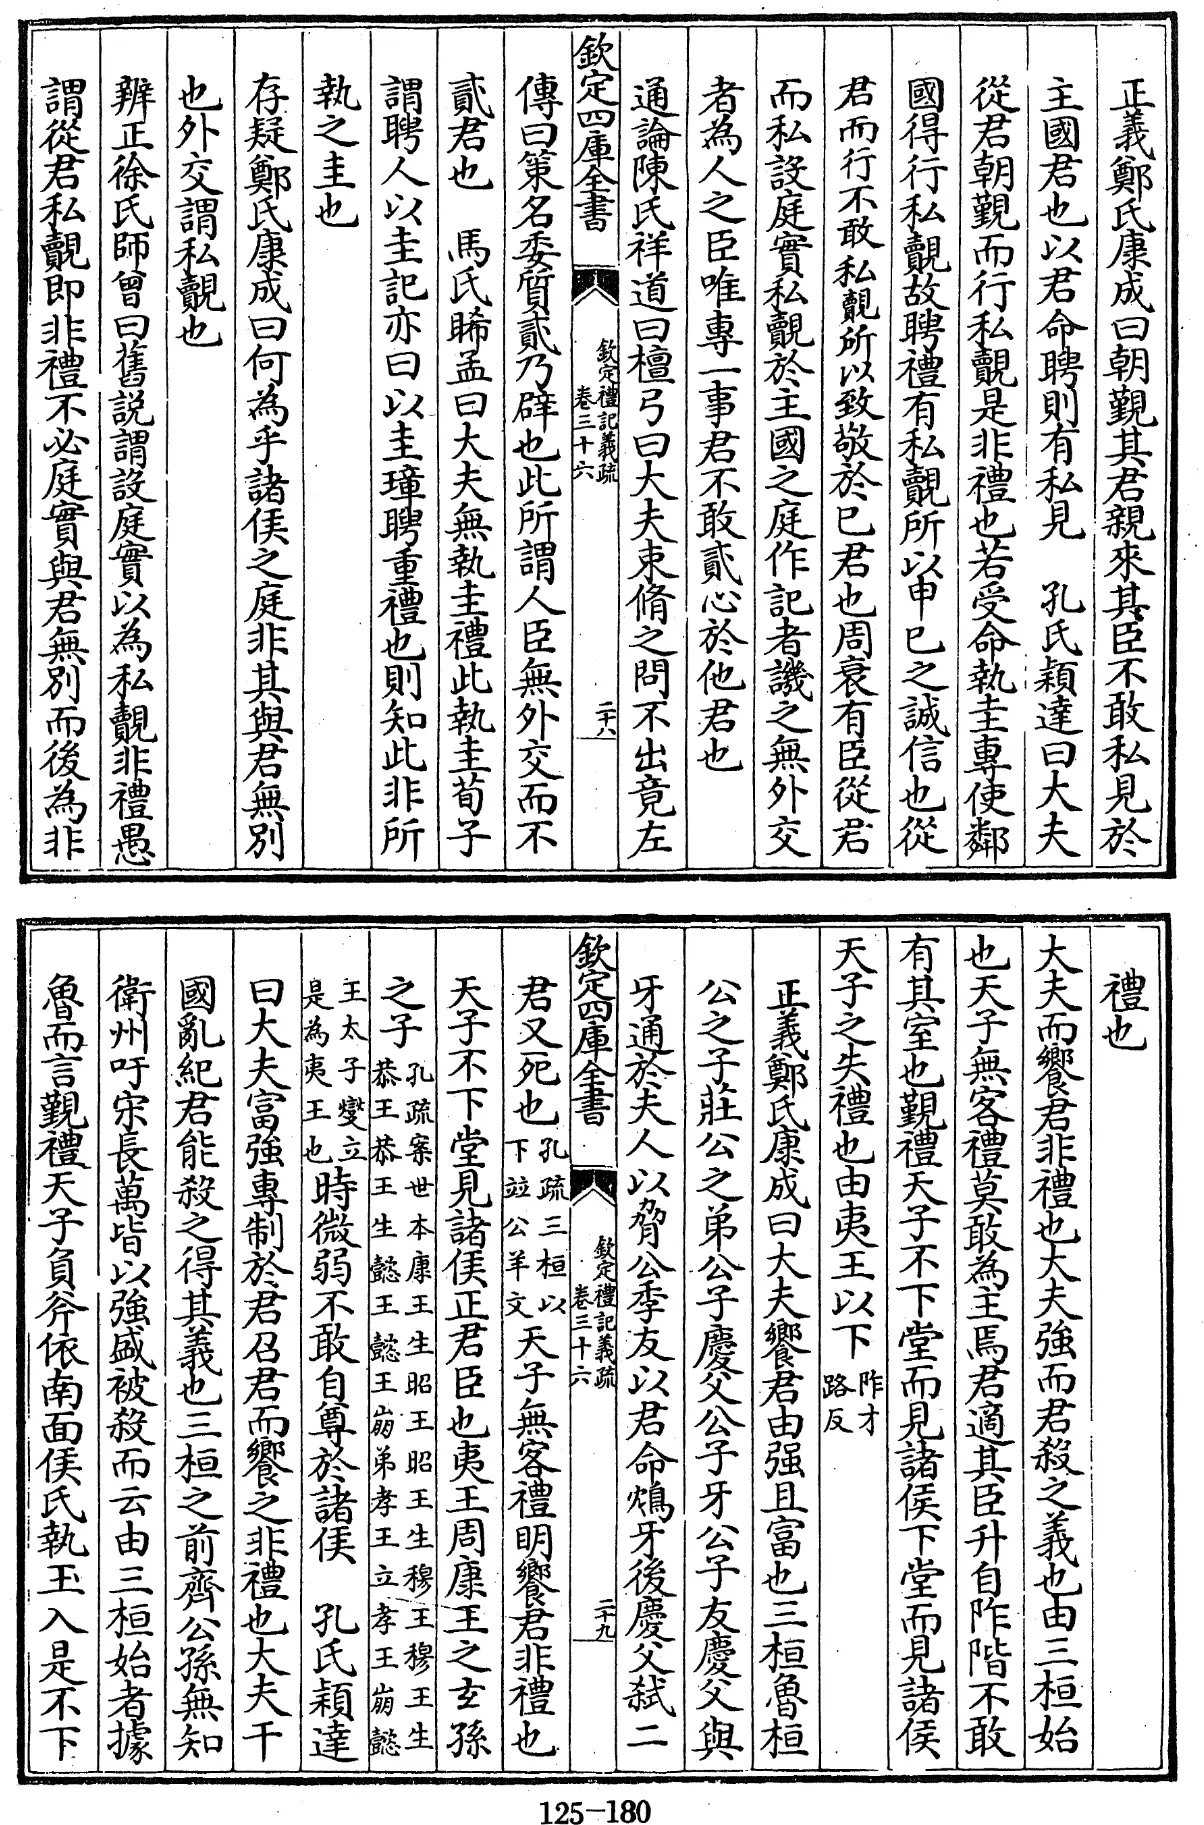 正義鄭氏康成曰朝覲其君親來其臣不敢私見於
主國君也以君命聘則有私見　孔氏穎達曰大夫
從君朝覲而行私覿是非禮也若受命執圭專使鄰
國得行私覿故聘禮有私覿所以申己之誠信也從
君而行不敢私覿所以致敬於己君也周衰有臣從君
而私設庭實私覿於主國之庭作記者譏之無外交
者為人之臣唯專一事君不敢貳心於他君也
通論陳氏祥道曰檀弓曰大夫束脩之問不出竟左
欽定四庫全書
欽定禮記義疏
卷三十六
二十八
傳曰策名委質貳乃辟也此所謂人臣無外交而不
貳君也　馬氏晞孟曰大夫無執圭禮此執圭荀子
謂聘人以圭記亦曰以圭璋聘重禮也則知此非所
執之圭也
存疑鄭氏康成曰何為乎諸侯之庭非其與君無別
也外交謂私覿也
辨正徐氏師曾曰舊説謂設庭實以為私覿非禮愚
謂從君私覿即非禮不必庭實與君無別而後為非
禮也
大夫而饗君非禮也大夫強而君殺之義也由三桓始
也天子無客禮莫敢為主焉君適其臣升自阼階不敢
有其室也覲禮天子不下堂而見諸侯下堂而見諸侯
天子之失禮也由夷王以下
阼才
路反
正義鄭氏康成曰大夫饗君由强且富也三桓魯桓
公之子莊公之弟公子慶父公子牙公子友慶父與
牙通於夫人以脅公季友以君命鴆牙後慶父弒二
欽定四庫全書
欽定禮記義疏
卷三十六
二十九
君又死也
孔疏三桓以
下竝公羊文
天子無客禮明饗君非禮也
天子不下堂見諸侯正君臣也夷王周康王之玄孫
之子
孔疏案世本康王生昭王昭王生穆王穆王生
恭王恭王生懿王懿王崩弟孝王立孝王崩懿
王太子燮立
是為夷王也
時微弱不敢自尊於諸侯　孔氏穎達
曰大夫富強專制於君召君而饗之非禮也大夫干
國亂紀君能殺之得其義也三桓之前齊公孫無知
衛州吁宋長萬皆以強盛被殺而云由三桓始者據
魯而言覲禮天子負斧依南面侯氏執玉入是不下
125-180